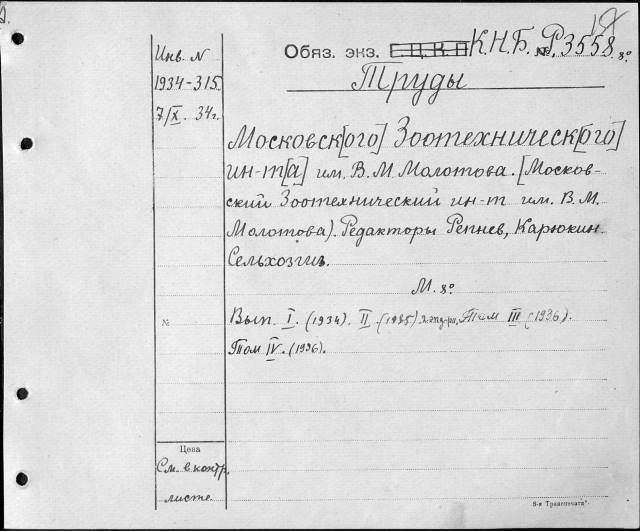 Инв. N
1934-315
7/X. 34г.
Обяз. экз. Е.Ц.К.П К.Н.Б. № Р.3558 8º
Труды
Московск[ого] Зоотехническ[ого]
ин-т[а] им. В. М. Молотова. [Москов-
ский Зоотехнический ин-т им. В. М.
Молотова). Редакторы Репнев, Карюкин
Сельхозгиз.
М. 8º
№ Вып. I. (1934). II. (1935) Том III (1936).
Том IV. (1936).
Цена
См. в контр.
листе.
8-я Транспечати"